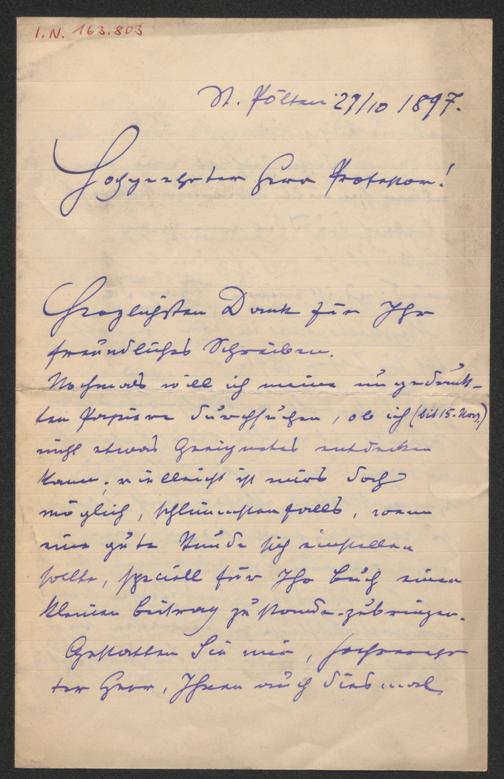 I.N. 163.803
St. Pölten 27/10 1897.
Hochgeehrter Herr Professor!
Herzlichsten Dank für Ihr
freundliches Schreiben.
Nochmals will ich meine ungedruck-
ten Papiere durchsuchen, ob ich (bis 15. Nov.)
nicht etwas Geeignetes entdecken
kann; vielleicht ist mirs doch
möglich, schlimmstenfalls, wenn
eine gute Stunde sich einstellen
sollte, speciell für Ihr Buch einen
kleinen Beitrag zustande zu bringen.
Gestatten Sie mir, hochverehr
ter Herr, Ihnen auch diesmal